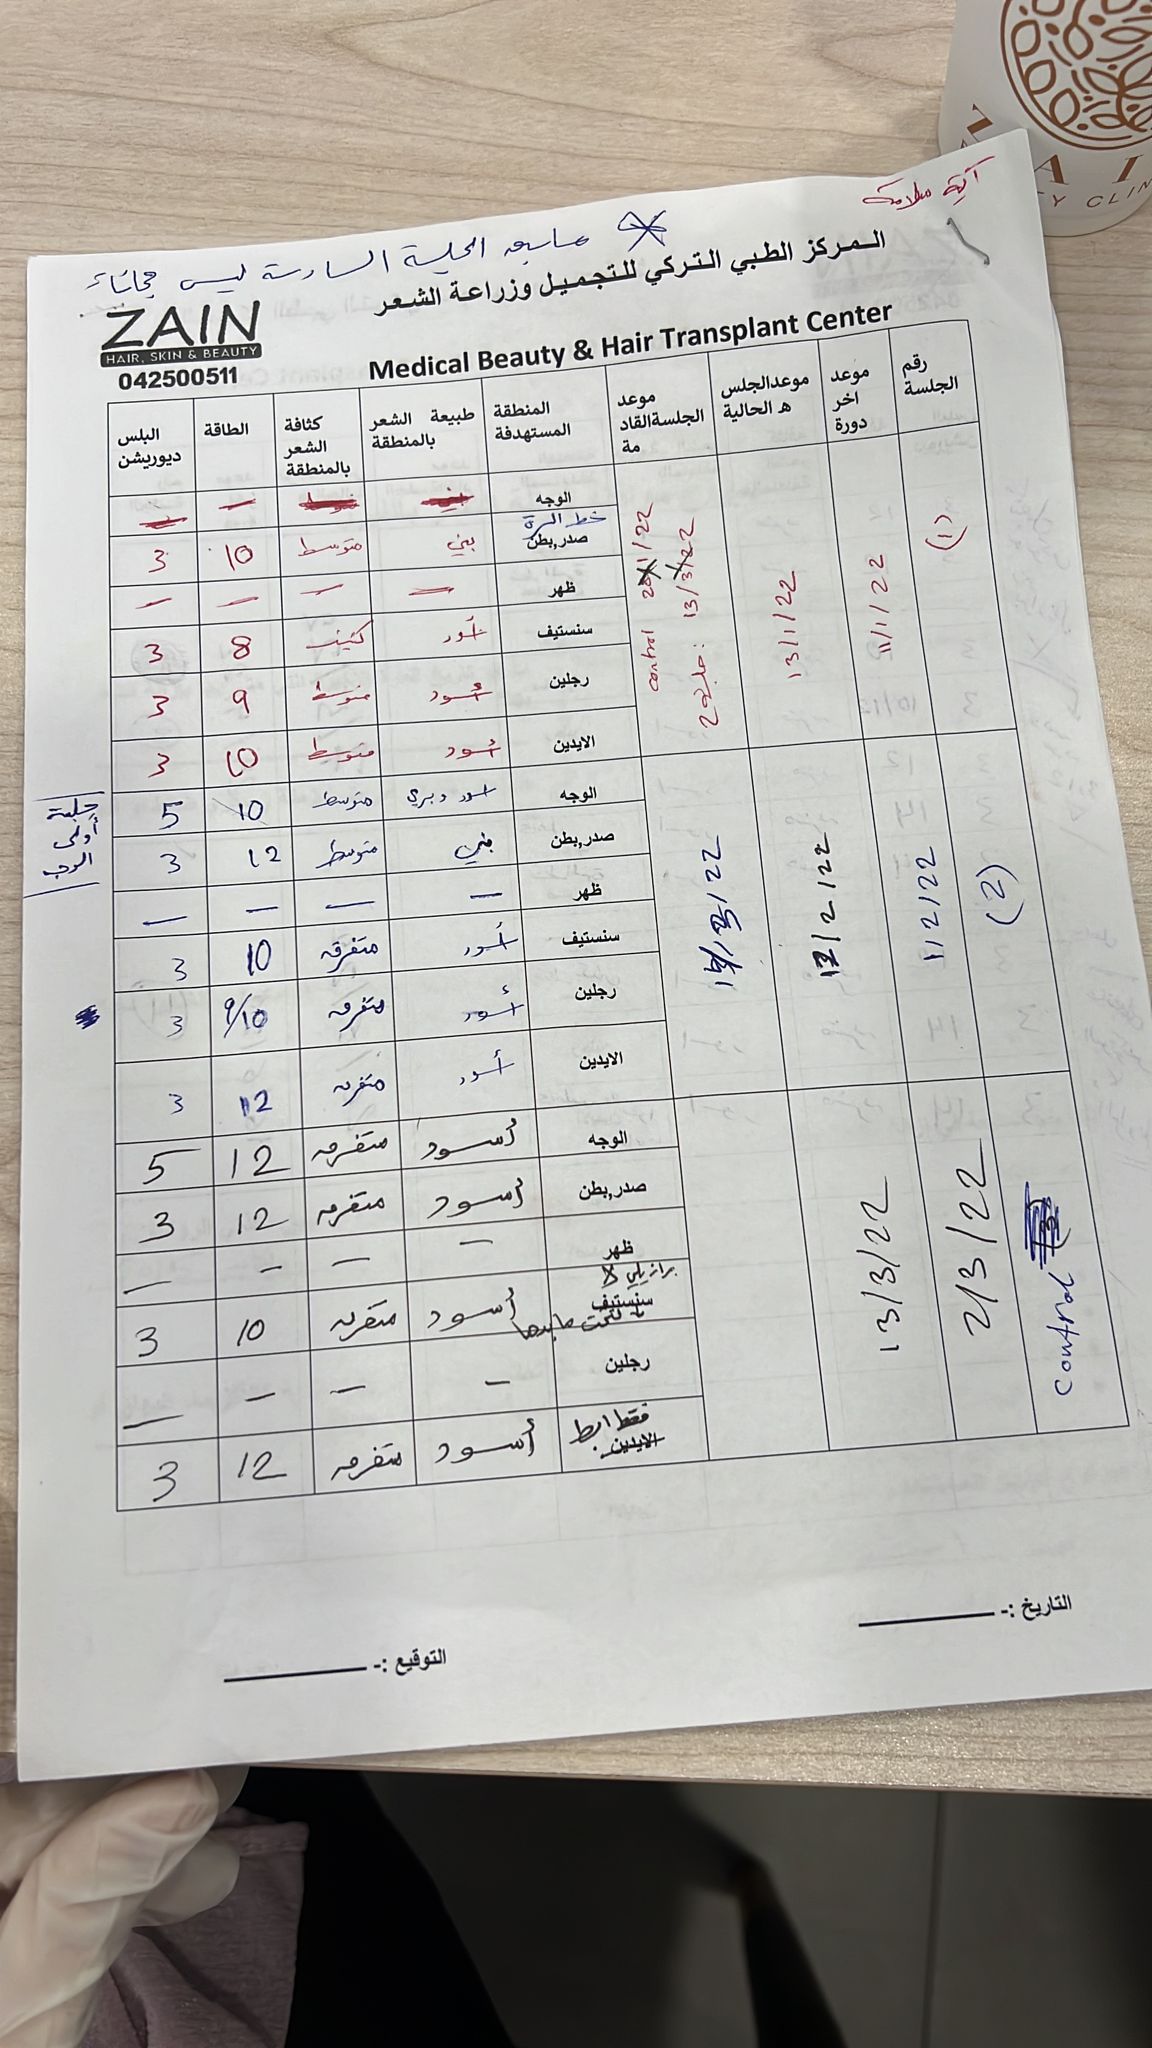 آية سلامة
ما بعد الجلسة السادسة ليس مجاناً
المركز الطبي التركي للتجميل وزراعة الشعر
ZAIN
HAIR, SKIN & BEAUTY
042500511
Medical Beauty & Hair Transplant Center
رقم الجلسة | موعد اخر دورة | موعدالجلس ه الحالية | موعد الجلسةالقاد مة | المنطقة المستهدفة | طبيعة الشعر بالمنطقة | كثافة الشعر بالمنطقة | الطاقة | البلس ديوريشن
(1) | 11/1/22 | 13/1/22 | control /1/22
2 جلسة: 13/3/22
الوجه | بني | متوسط | — | —
خط السرة
صدر,بطن | بني | متوسط | 10 | 3
ظهر | — | — | — | —
سنستيف | أسود | كثيف | 8 | 3
رجلين | أسود | متوسط | 9 | 3
الايدين | أسود | متوسط | 10 | 3
(2) | 11/2/22 | /2/22 | /22
جلسة أولى للوجه
الوجه | اسود وبري | متوسط | 10 | 5
صدر,بطن | بني | متوسط | 12 | 3
ظهر | — | — | — | —
سنستيف | أسود | متفرقه | 10 | 3
رجلين | أسود | متفرقه | 9/10 | 3
الايدين | أسود | متفرقه | 12 | 3
control | 2/3/22 | 13/3/22
الوجه | أسود | متفرقه | 12 | 5
صدر,بطن | أسود | متفرقه | 12 | 3
ظهر | — | — | — | —
برازيلي
سنستيف | أسود | متفرقه | 10 | 3
رجلين | — | — | — | —
فقط ابط
الايدين | أسود | متفرقه | 12 | 3
التاريخ :-
التوقيع :-
ZAI
TY CLIN